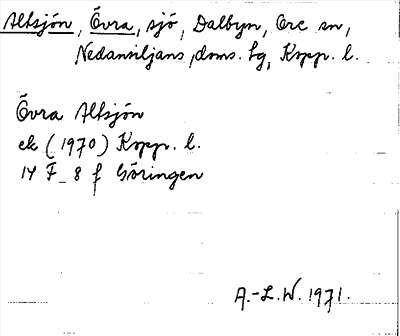 Altsjön, Övra, sjö, Dalbyn, Ore sn,
Nedansiljans doms. tg, Kopp. l.
Övra Altsjön
ek (1970) Kopp. l.
14 F_8 f Göringen
A.-L.W. 1971.